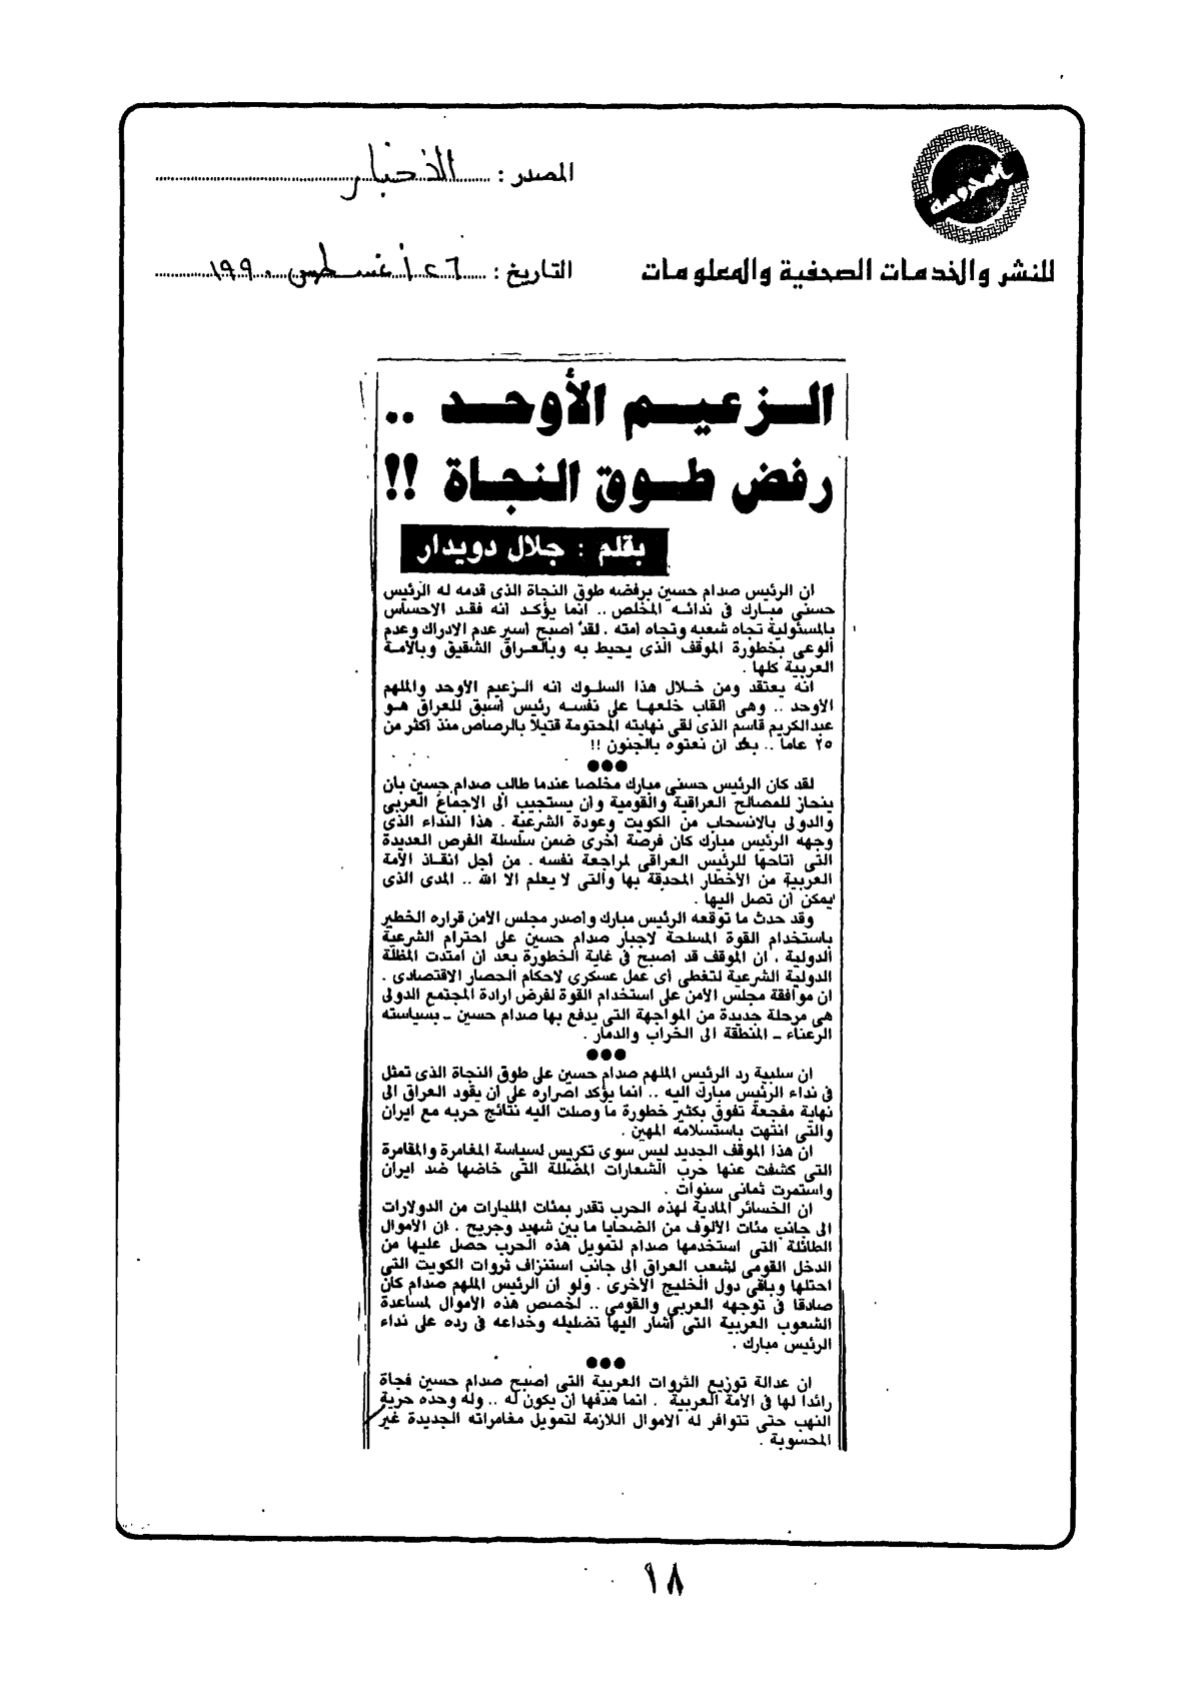 المحروسة
المصدر : الأخبار
للنشر والخدمات الصحفية والمعلومات
التاريخ : ٢٦ أغسطس ١٩٩٠
الزعيم الأوحد ..
رفض طوق النجاة !!
بقلم : جلال دويدار
ان الرئيس صدام حسين برفضه طوق النجاة الذى قدمه له الرئيس
حسنى مبارك فى ندائه المخلص .. انما يؤكد انه فقد الاحساس
بالمسئولية تجاه شعبه وتجاه امته . لقد أصبح أسير عدم الادراك وعدم
الوعى بخطورة الموقف الذى يحيط به وبالعراق الشقيق وبالأمة
العربية كلها .
انه يعتقد ومن خلال هذا السلوك انه الزعيم الأوحد والملهم
الأوحد .. وهى القاب خلعها على نفسه رئيس أسبق للعراق هو
عبدالكريم قاسم الذى لقى نهايته المحتومة قتيلا بالرصاص منذ أكثر من
٢٥ عاما .. بعد ان نعتوه بالجنون !!
●●●
لقد كان الرئيس حسنى مبارك مخلصا عندما طالب صدام حسين بان
ينحاز للمصالح العراقية والقومية وان يستجيب الى الاجماع العربى
والدولى بالانسحاب من الكويت وعودة الشرعية . هذا النداء الذى
وجهه الرئيس مبارك كان فرصة أخرى ضمن سلسلة الفرص العديدة
التى أتاحها للرئيس العراقى لمراجعة نفسه . من أجل انقاذ الأمة
العربية من الأخطار المحدقة بها والتى لا يعلم الا الله .. المدى الذى
يمكن أن تصل اليها .
وقد حدث ما توقعه الرئيس مبارك وأصدر مجلس الأمن قراره الخطير
باستخدام القوة المسلحة لاجبار صدام حسين على احترام الشرعية
الدولية . ان الموقف قد أصبح فى غاية الخطورة بعد أن امتدت المظلة
الدولية الشرعية لتغطى أى عمل عسكرى لاحكام الحصار الاقتصادى .
ان موافقة مجلس الأمن على استخدام القوة لفرض ارادة المجتمع الدولى
هى مرحلة جديدة من المواجهة التى يدفع بها صدام حسين ـ بسياسته
الرعناء ـ المنطقة الى الخراب والدمار .
●●●
ان سلبية رد الرئيس الملهم صدام حسين على طوق النجاة الذى تمثل
فى نداء الرئيس مبارك اليه .. انما يؤكد اصراره على أن يقود العراق الى
نهاية مفجعة تفوق بكثير خطورة ما وصلت اليه نتائج حربه مع ايران
والتى انتهت باستسلامه المهين .
ان هذا الموقف الجديد ليس سوى تكريس لسياسة المغامرة والمقامرة
التى كشفت عنها حرب الشعارات المضللة التى خاضها ضد ايران
واستمرت ثمانى سنوات .
ان الخسائر المادية لهذه الحرب تقدر بمئات المليارات من الدولارات
الى جانب مئات الألوف من الضحايا ما بين شهيد وجريح . ان الأموال
الطائلة التى استخدمها صدام لتمويل هذه الحرب حصل عليها من
الدخل القومى لشعب العراق الى جانب استنزاف ثروات الكويت التى
احتلها وباقى دول الخليج الأخرى . ولو أن الرئيس الملهم صدام كان
صادقا فى توجهه العربى والقومى .. لخصص هذه الأموال لمساعدة
الشعوب العربية التى أشار اليها تضليله وخداعه فى رده على نداء
الرئيس مبارك .
●●●
ان عدالة توزيع الثروات العربية التى أصبح صدام حسين فجأة
رائدا لها فى الأمة العربية . انما هدفها أن يكون له .. وله وحده حرية
النهب حتى تتوافر له الأموال اللازمة لتمويل مغامراته الجديدة غير
المحسوبة .
١٨